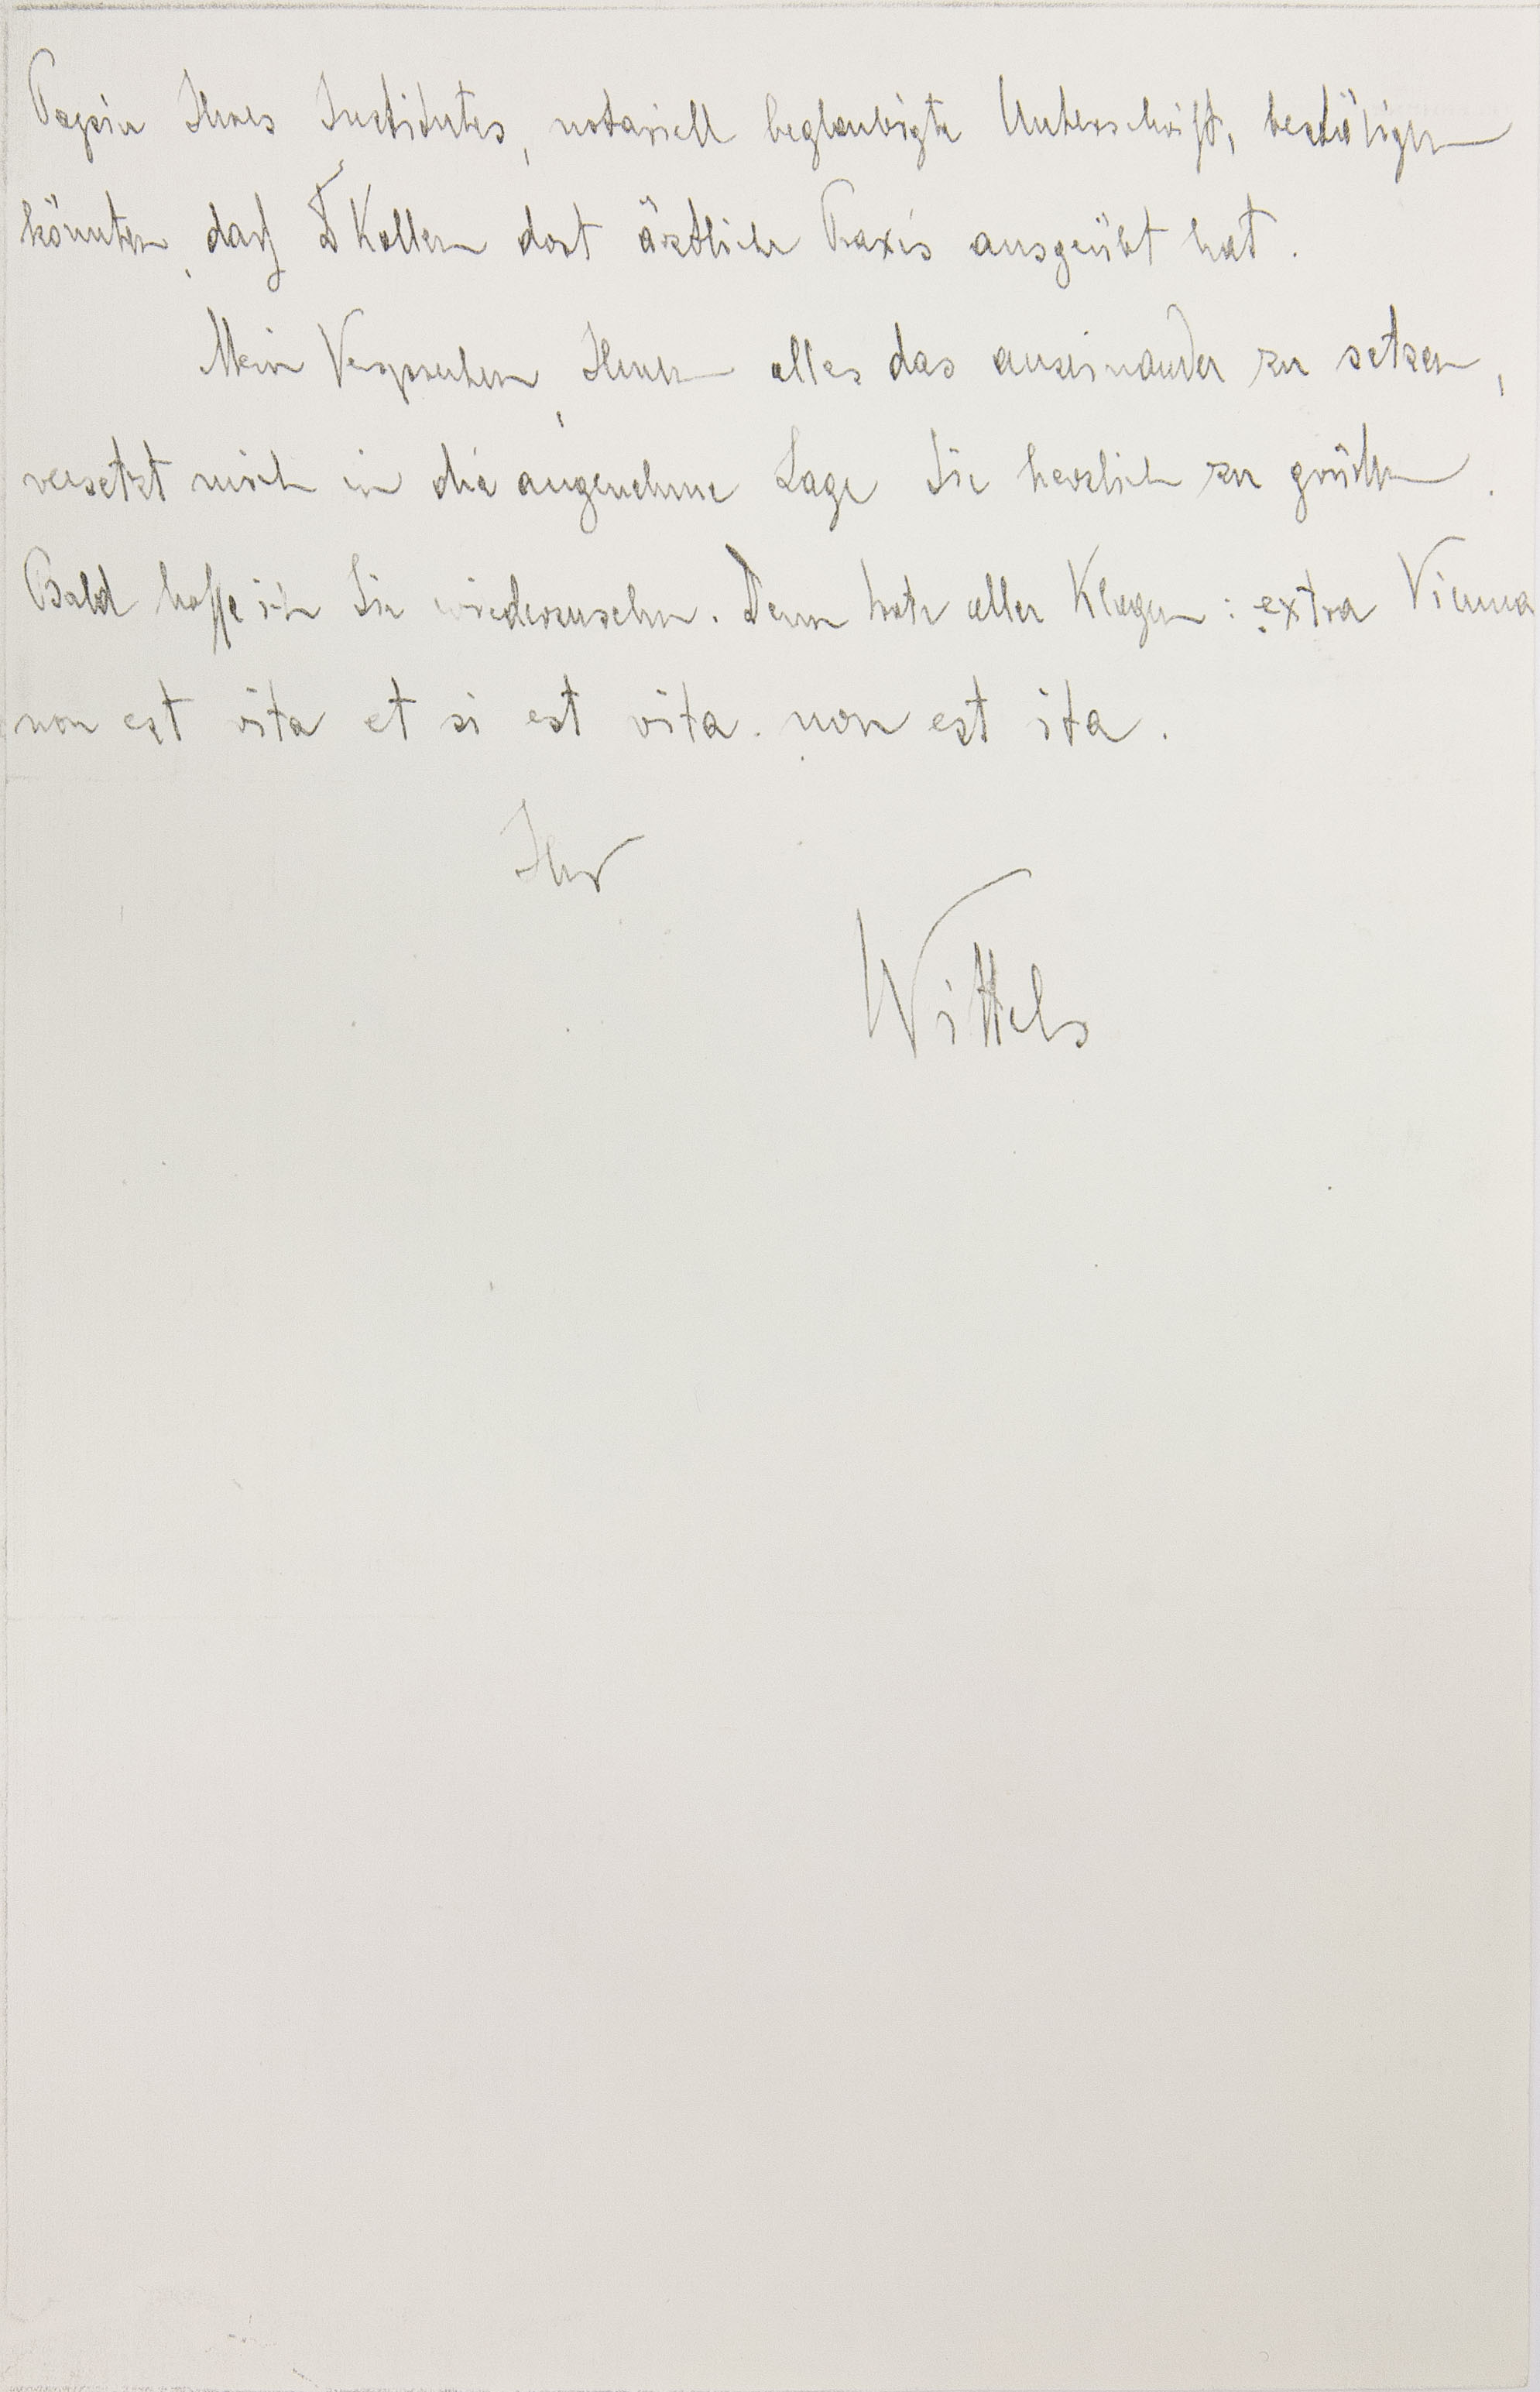 Papier Ihres Institutes, notariell beglaubigte Unterschrift, bestätigen
könnten, daß Dr Kollern dort ärztliche Praxis ausgeübt hat.
Mein Versprechen, Ihnen alles das auseinander zu setzen,
versetzt mich in die angenehme Lage Sie herzlich zu grüßen.
Bald hoffe ich Sie wiederzusehn. Denn trotz aller Klagen: extra Vienna
non est vita et si est vita. non est ita.
Ihr
Wittels